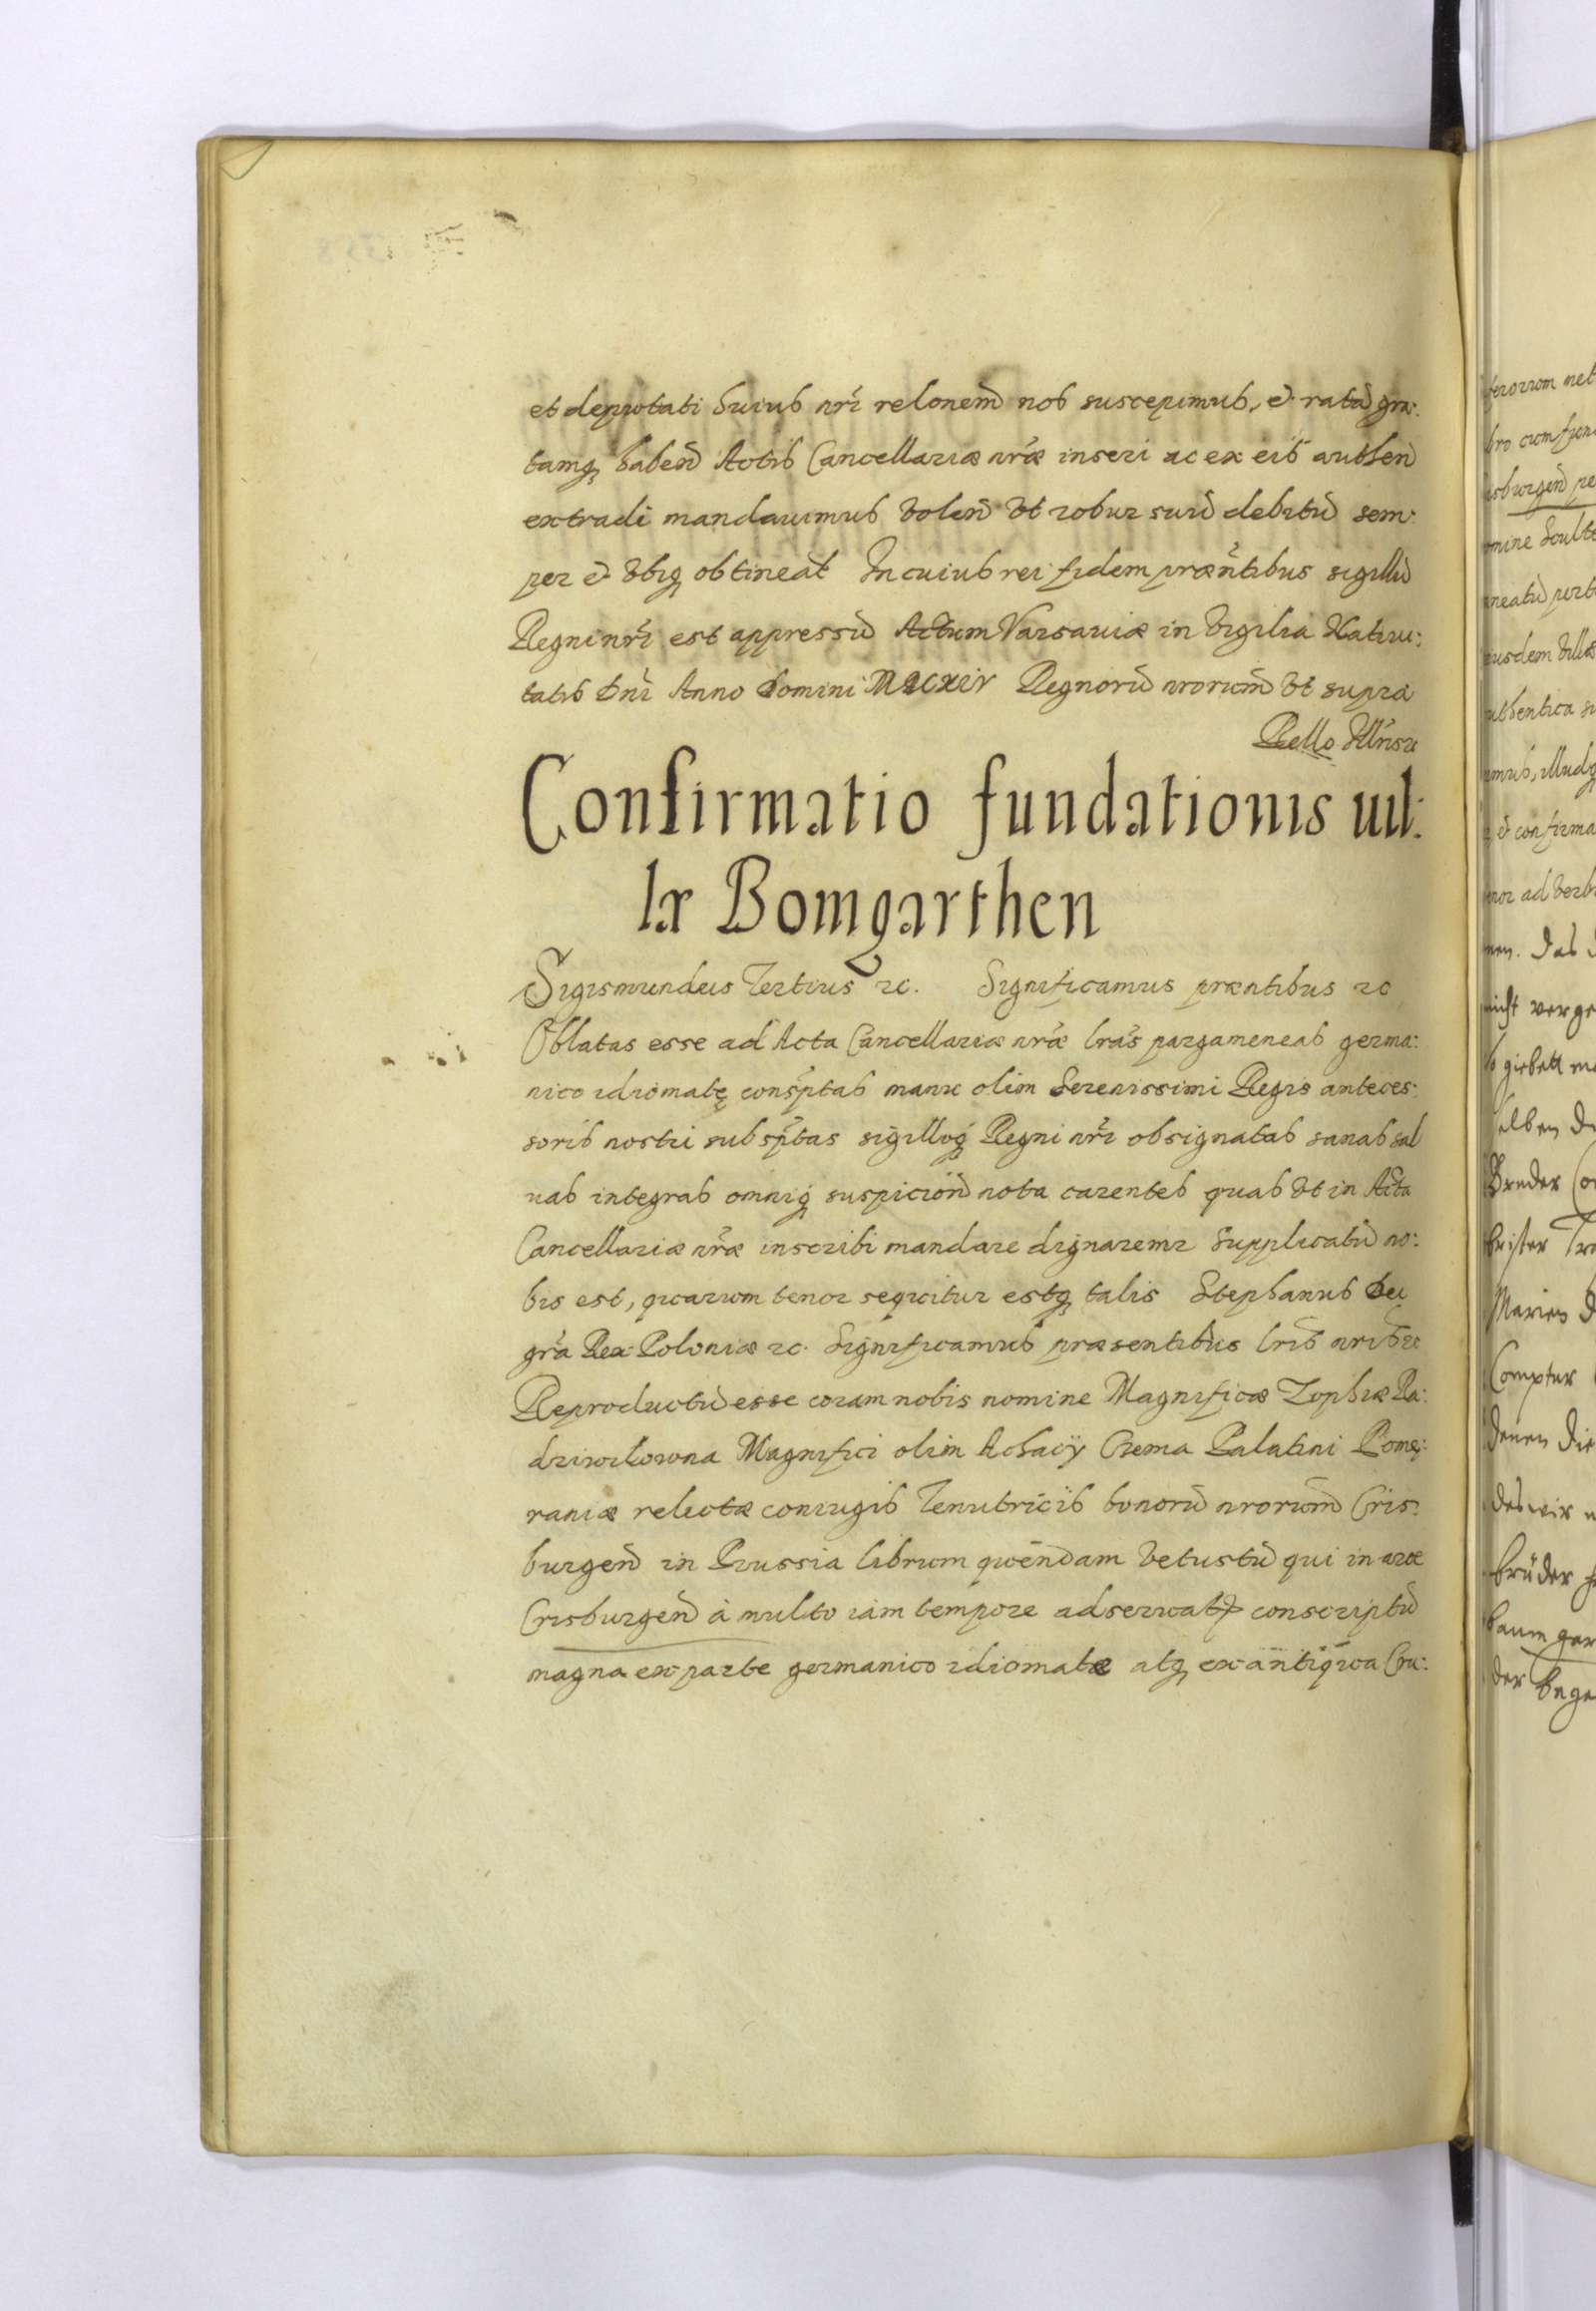 et deputati huius nrī relonem̄ nos suscepimus, et ratā gra:
tamq; haben̄ Actis Cancellariæ nr̄æ inseri ac ex eis authen̄
extradi mandauimus volen̄ vt robur suū debitū sem:
per et vbiq; obtineat In cuius rei fidem præn̄tibus sigillū
Regni nrī est appressū Actum Varsauiæ in vigilia Natiui:
tatis Dnī Anno Domini Regnorū nrorum̄ vt supra
Confirmatio fundationis uil:
læ Bomgarthen
Sigismundus Tertius ꝛc. Significamus præntibus ꝛc
Oblatas esse ad Acta Cancellariæ nr̄æ lrās pargameneas germa:
nico idiomatę consp̄tas manu olim Serenissimi Regis anteces:
soris nostri subsp̄tas sigilloq; Regni nrī obsignatas sanas sal
uas integras omniq; suspicion̄ nota carentes quas vt in Acta
Cancellariæ nr̄æ inscribi mandare dignaremr supplicatū no:
bis est, quarum tenor sequitur estq; talis Stephanus Dei
grā Rex Poloniæ ꝛc. Significamus præsentibus lris̄ nris̄ ꝛc
Reproductū esse coram nobis nomine Magnificæ Zophiæ Ra:
dziwilowna Magnifici olim Achacÿ Czema Palatini Pomę:
raniæ relictæ coniugis Tenutricis bonorū nrorum̄ Cris:
burgen̄ in Prussia librum quendam vetustū qui in arce
Crisburgen̄ à multo iam tempore conscriptū
magna ex parte germanico idiomate atq; ex antiqua Cru: